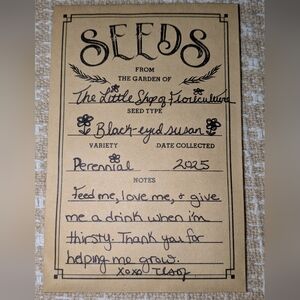 SEEDS
FROM
THE GARDEN OF
The Little Shop of Floriculture
SEED TYPE
Black-eyed susan
VARIETY DATE COLLECTED
Perennial 2025
NOTES
Feed me, love me, + give
me a drink when i'm
thirsty. Thank you for
helping me grow.
xoxo